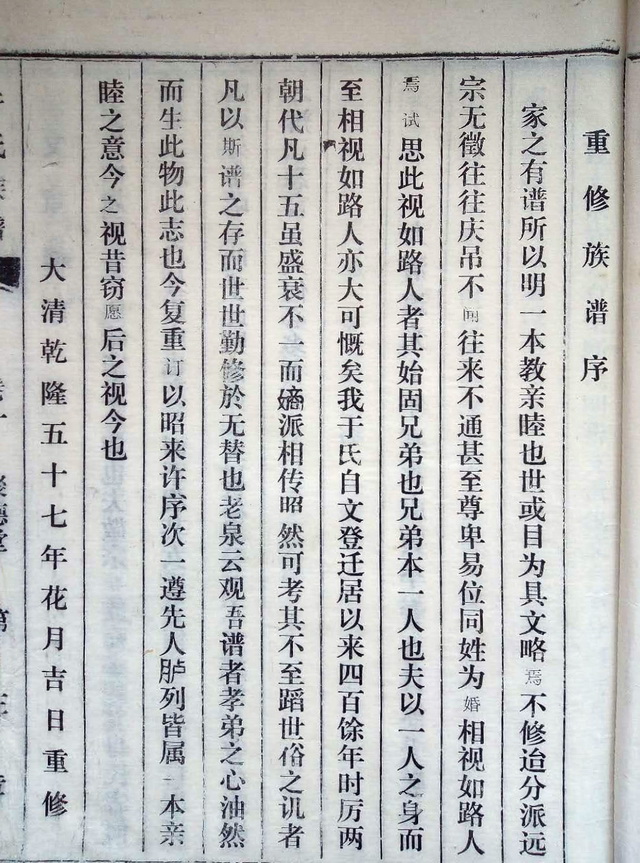 重修族谱序
家之有谱所以明一本教亲睦也世或目为具文略焉不修迨分派远
宗无徵往往庆吊不闻往来不通甚至尊卑易位同姓为婚相视如路人
焉试思此视如路人者其始固兄弟也兄弟本一人也夫以一人之身而
至相视如路人亦大可慨矣我于氏自文登迁居以来四百馀年时历两
朝代凡十五虽盛衰不一而嫡派相传昭然可考其不至蹈世俗之讥者
凡以斯谱之存而世世勤修於无替也老泉云观吾谱者孝弟之心油然
而生此物此志也今复重订以昭来许序次一遵先人胪列皆属一本亲
睦之意今之视昔窃愿后之视今也
大清乾隆五十七年花月吉日重修